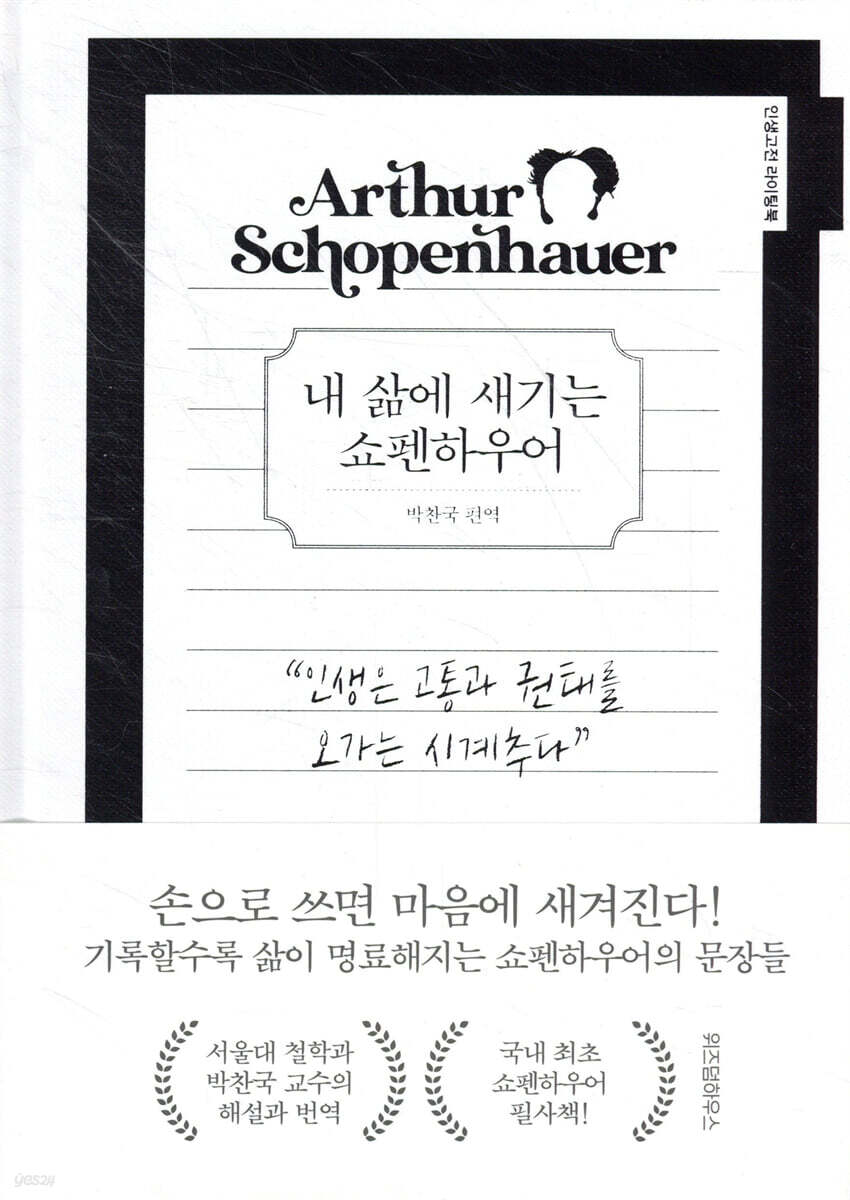 인생고전 라이팅북
Arthur
Schopenhauer
내 삶에 새기는
쇼펜하우어
박찬국 편역
“인생은 고통과 권태를
오가는 시계추다”
손으로 쓰면 마음에 새겨진다!
기록할수록 삶이 명료해지는 쇼펜하우어의 문장들
서울대 철학과
박찬국 교수의
해설과 번역
국내 최초
쇼펜하우어
필사책!
위즈덤하우스
yes24